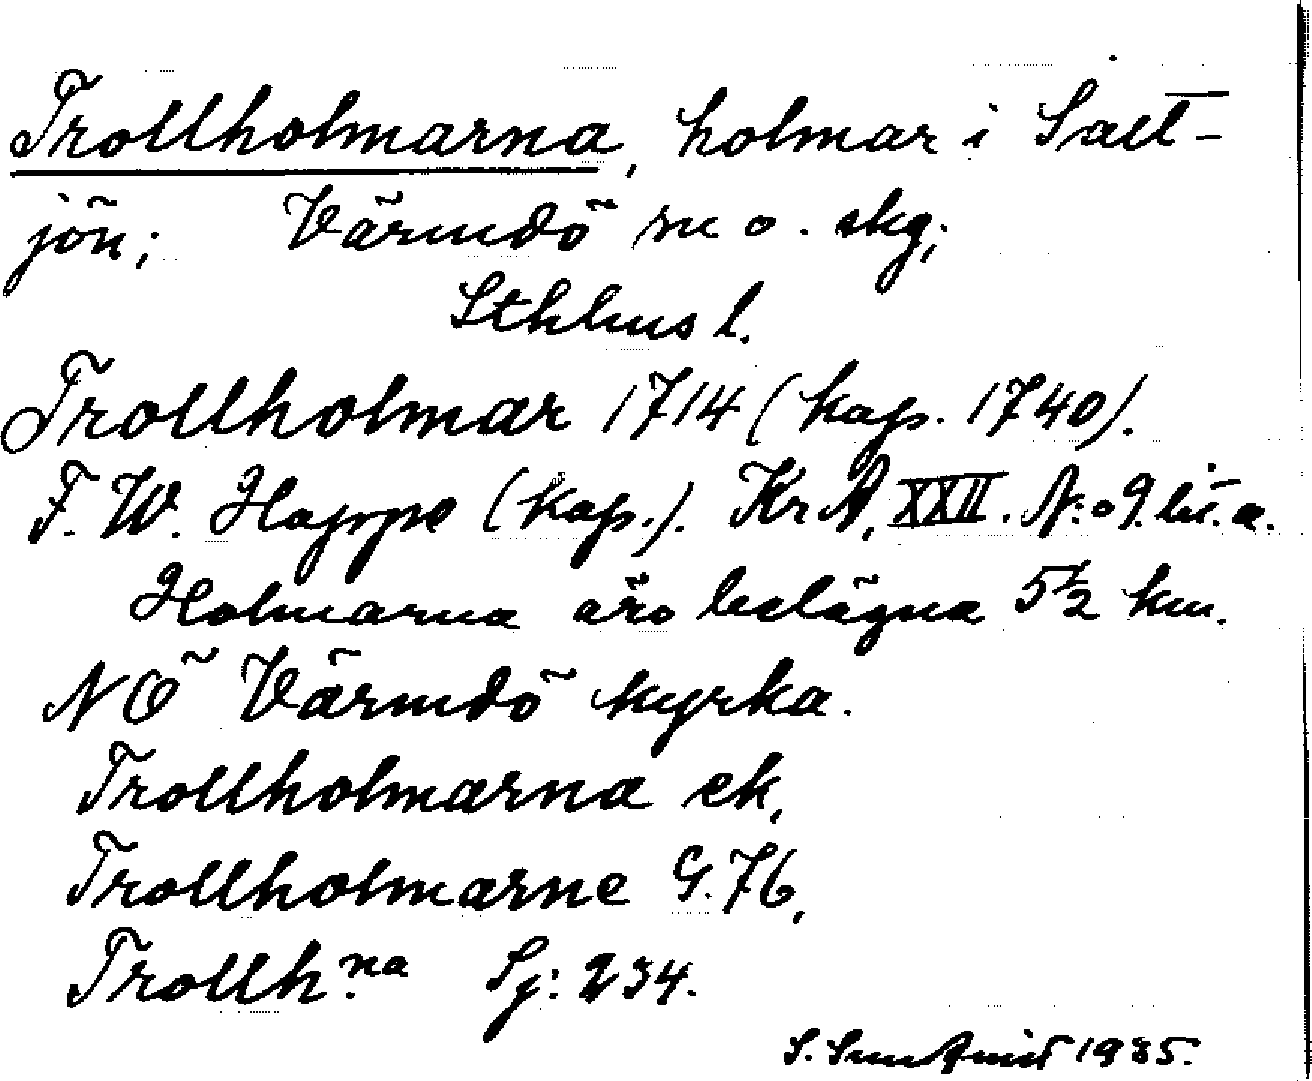 Trollholmarna, holmar i Salt-
jön; Värmdö sn o. skg;
Sthlms l.
Trollholmar 1714 (kop. 1740).
F. W. Hoppe (kop.). KrA, XXII. N:o 9. lit. a.
Holmarna äro belägna 5½ km.
NÖ Värmdö kyrka.
Trollholmarna ek,
Trollholmarne G. 76,
Trollh:na Sj: 234.
S. 1935.